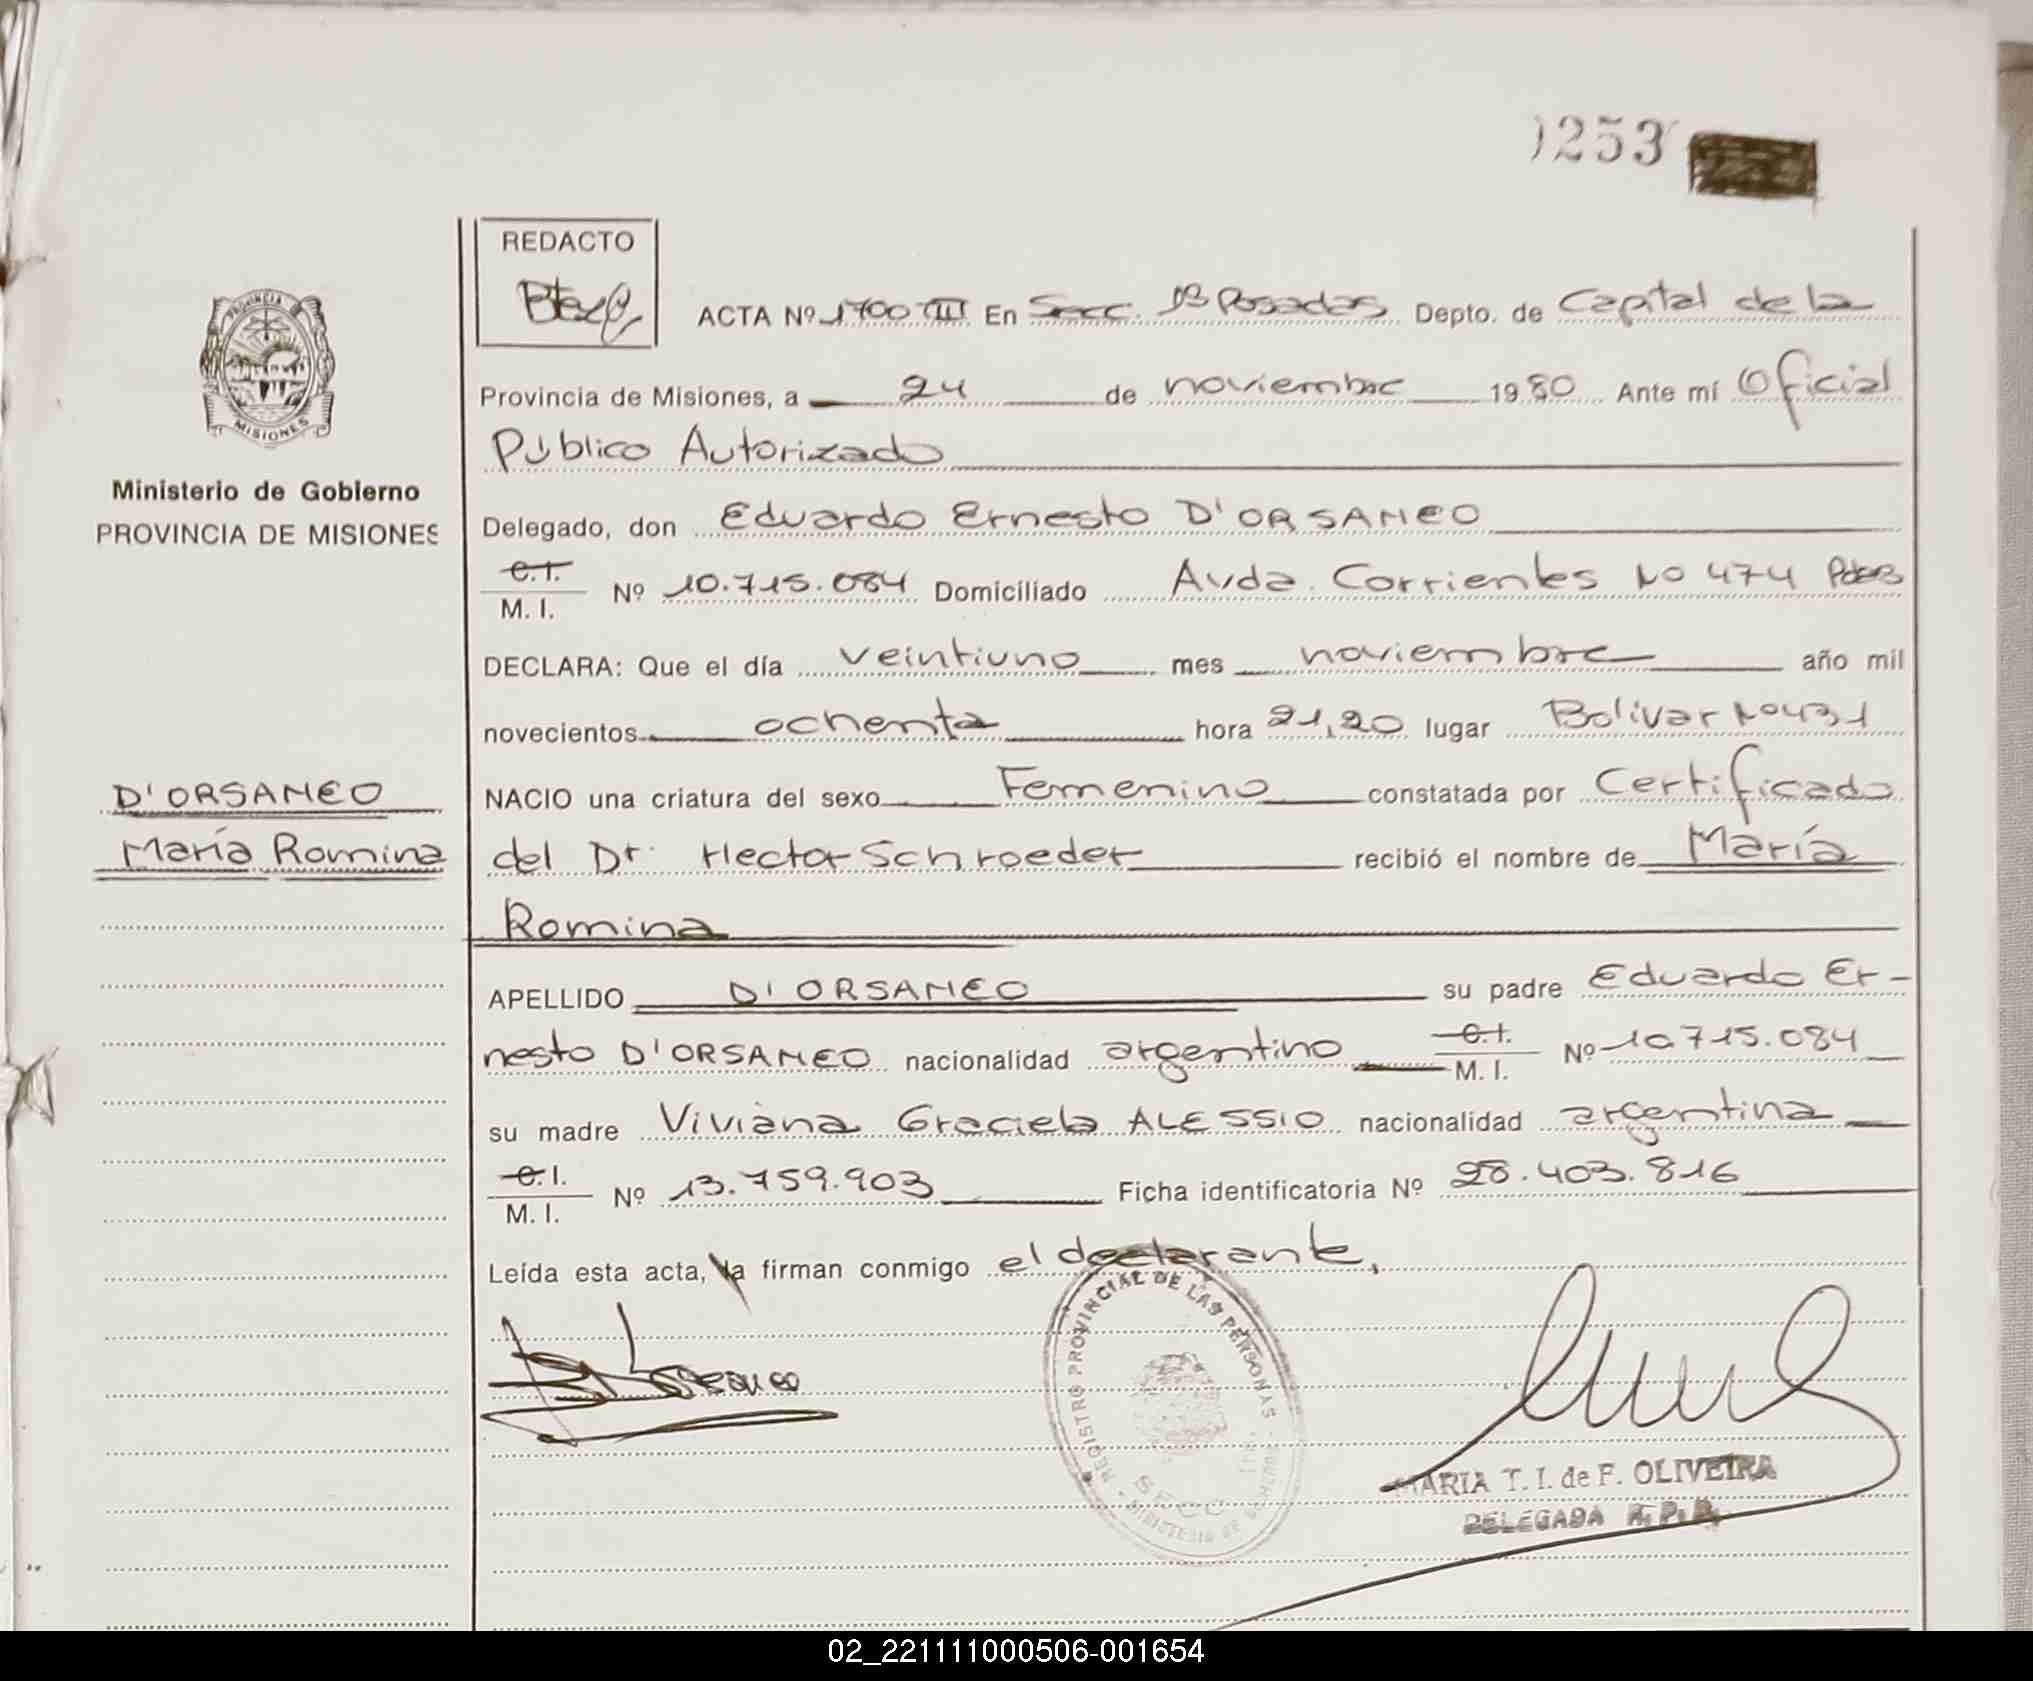 0253
REDACTO
ACTA Nº 1700 III En Secc. 1ª Posadas Depto. de Capital de la
Provincia de Misiones, a 24 de noviembre 1980 Ante mí Oficial
Público Autorizado
PROVINCIA
MISIONES
Ministerio de Gobierno
PROVINCIA DE MISIONES
Delegado, don Eduardo Ernesto D'ORSANEO
C.I.
M. I. Nº 10.715.084 Domiciliado Avda. Corrientes Nº 474 Pdas
DECLARA: Que el día veintiuno mes noviembre año mil
novecientos ochenta hora 21,20 lugar Bolivar Nº 431
NACIO una criatura del sexo Femenino constatada por Certificado
D'ORSANEO
María Romina
del Dr. Hector Schroeder recibió el nombre de María
Romina
APELLIDO D'ORSANEO su padre Eduardo Er-
nesto D'ORSANEO nacionalidad argentino C.I. M. I. Nº 10.715.084
su madre Viviana Graciela ALESSIO nacionalidad argentina
C.I.
M. I. Nº 13.759.903 Ficha identificatoria Nº 28.403.816
Leída esta acta, la firman conmigo el declarante,
REGISTRO PROVINCIAL DE LAS PERSONAS
MINISTERIO DE GOBIERNO
SECC
MARIA T. I. de F. OLIVEIRA
DELEGADA R. P. P.
02_221111000506-001654